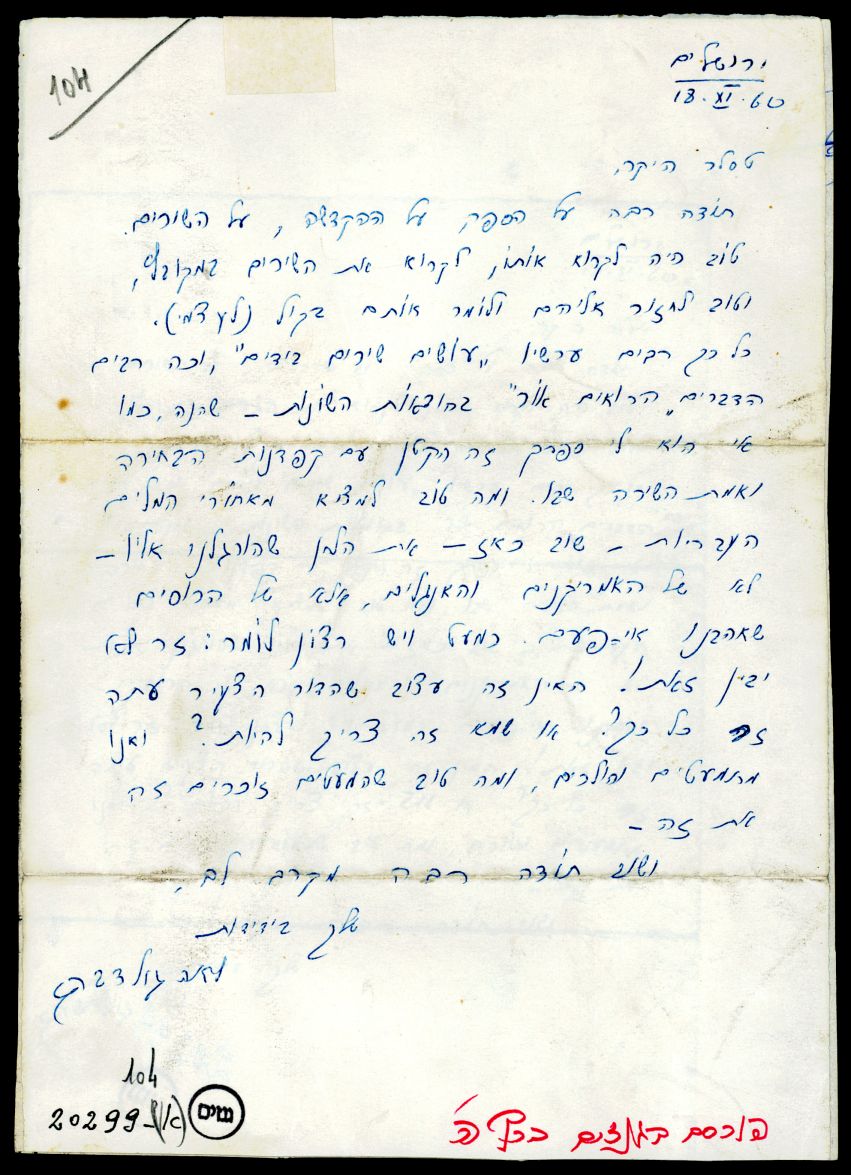 104
ירושלים
18.XI.60
טסלר היקר,
תודה רבה על הספר, על ההקדשה, על השורות.
טוב היה לקרוא אותו, לקרוא את השירים במקובץ,
וטוב לחזור אליהם ולומר אותם בקול (לעצמי).
כל כך רבים עכשיו "עושים שירים בידים", וכה רבים
הדברים "הרואים אור" בהוצאות השונות – שהנה, כמו
אי הוא לי ספרך זה הקטן עם קפדנות הבחירה
ואמת השירה שבו. ומה טוב למצוא מאחורי המלים
העבריות – שוב כאז – את הלחן שהורגלנו אליו –
לא של האמריקנים והאנגלים, אלא של הרוסים
שאהבנו אי-פעם. כמעט ויש רצון לומר: זר לא
יבין זאת! האין זה עצוב שהדור הצעיר עתה
זר כל כך? או שמא זה צריך להיות? ואנו
מתמעטים והולכים, ומה טוב שהמעטים זוכרים זה
את זה –
ושוב תודה רבה מקרב לב,
שלך בידידות
לאה גולדברג
104
20299
פורסם בגנזים כרך ה'